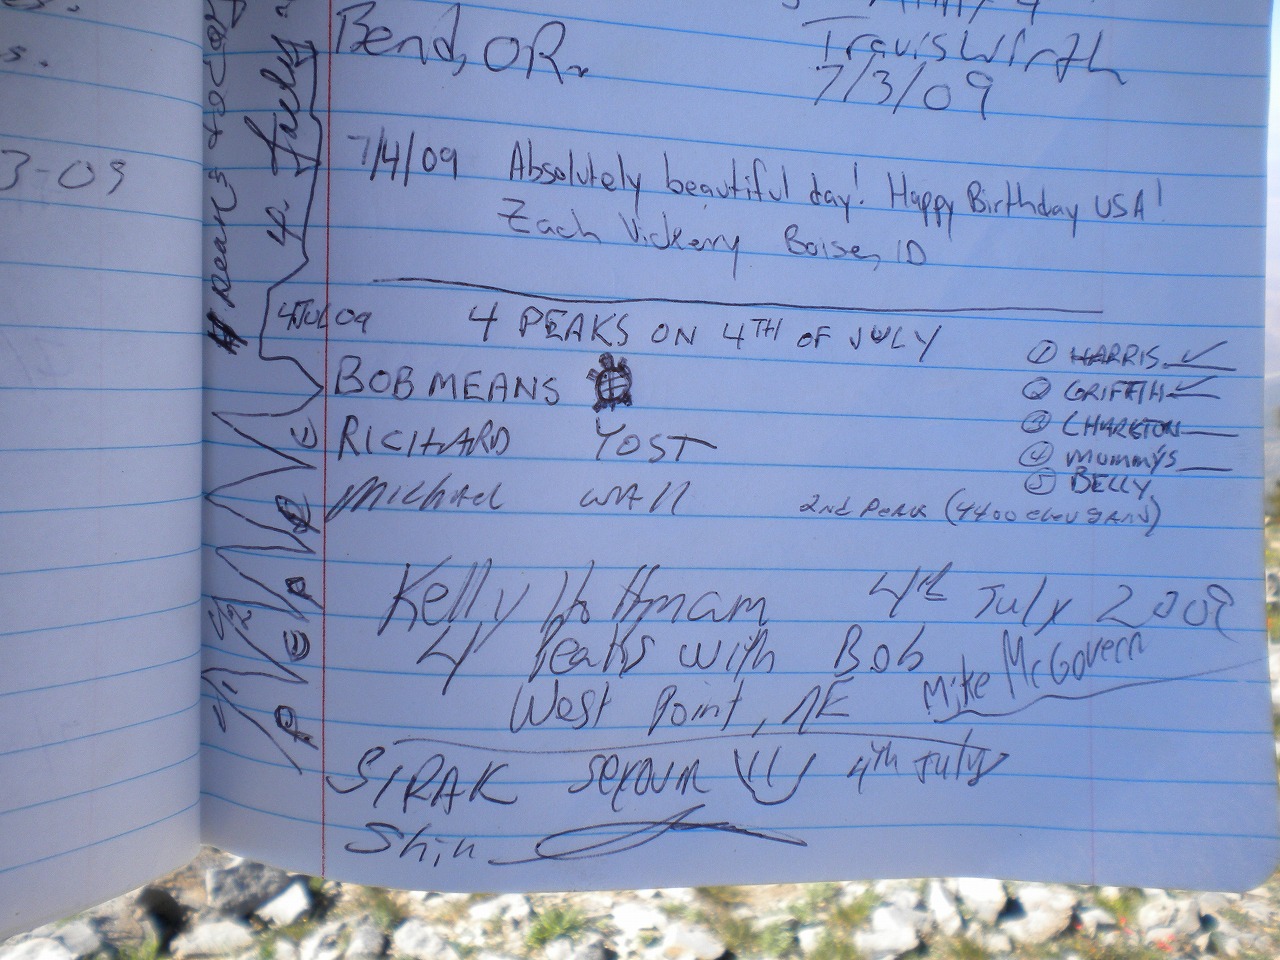 Bend, OR.
Travis Wirth
7/3/09
3-09
7/4/09 Absolutely beautiful day! Happy Birthday USA!
Zach Vickery Boise, ID
4JUL09 4 PEAKS ON 4TH OF JULY
BOB MEANS
RICHARD YOST
Michael WAll
① HARRIS ✓
② GRIFFITH ✓
③ CHARLTON
④ MUMMYS
⑤ BELLY
2nd PEAK (4400 elev gain)
Kelly Hoffmam 4th July 2009
4 Peaks with Bob
West Point, NE
Mike McGovern
SIRAK Seyoum 4th July